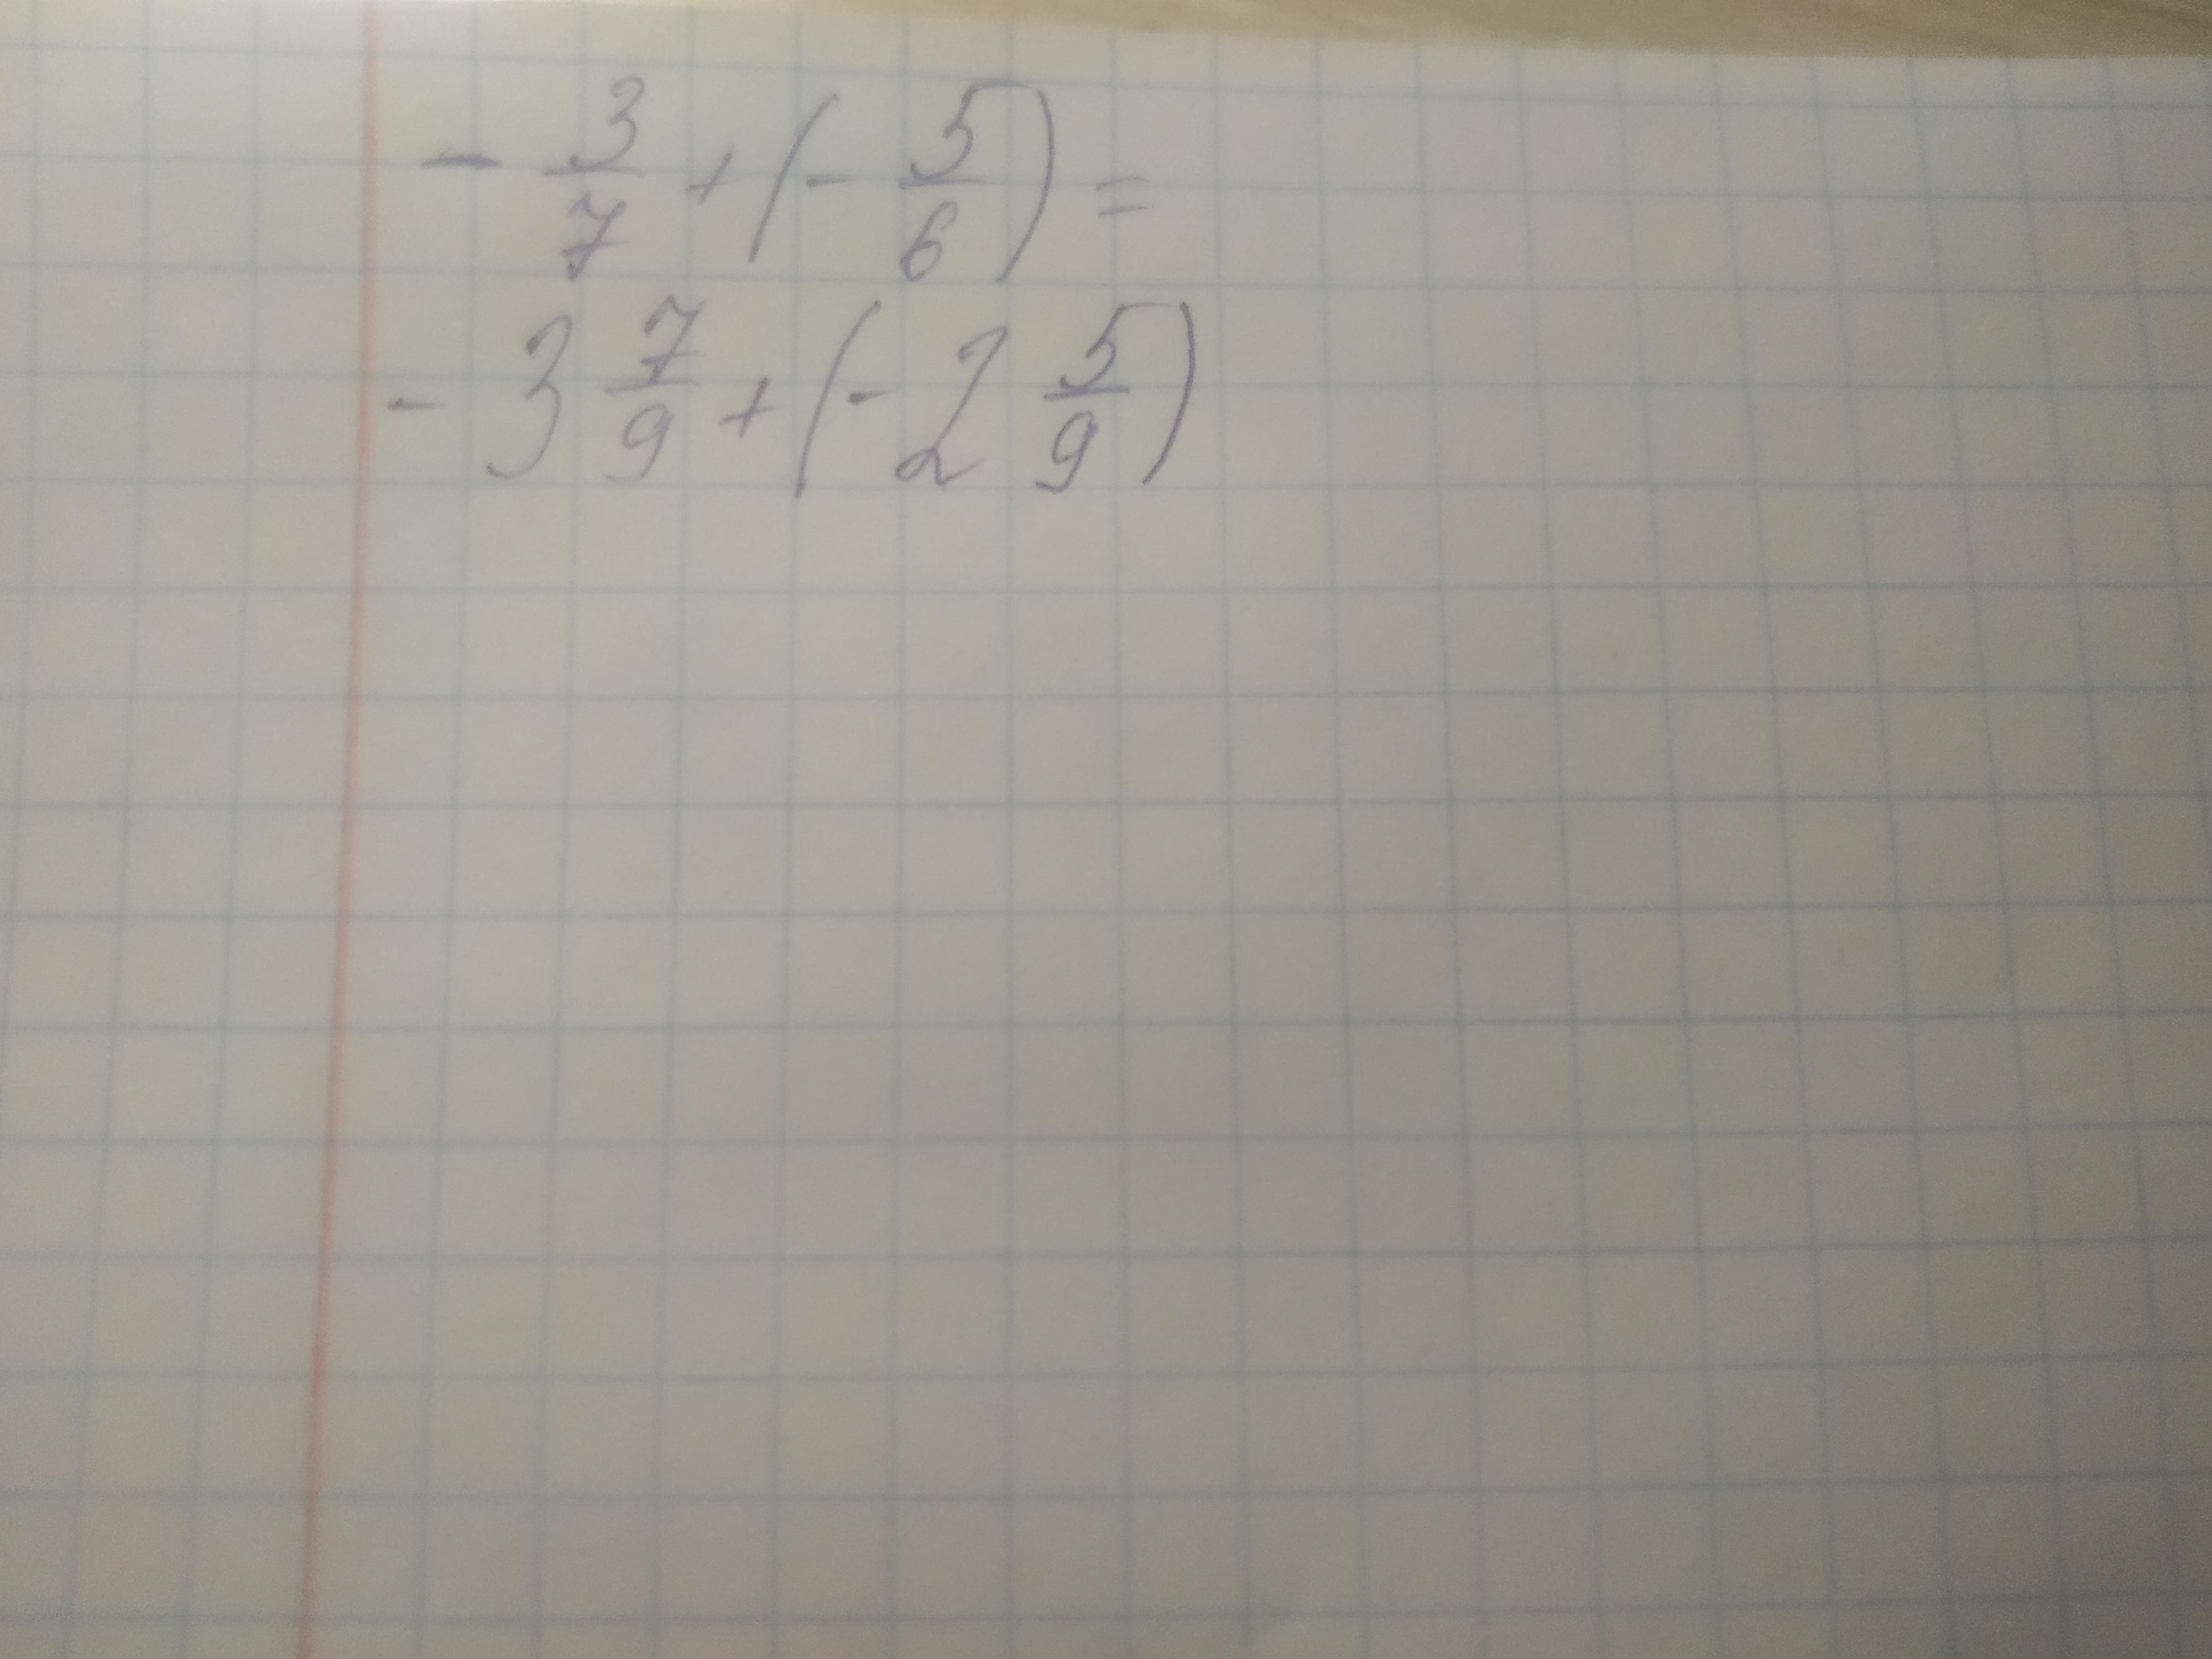 - 3/7 + (- 5/6) =
- 3 7/9 + (- 2 5/9)